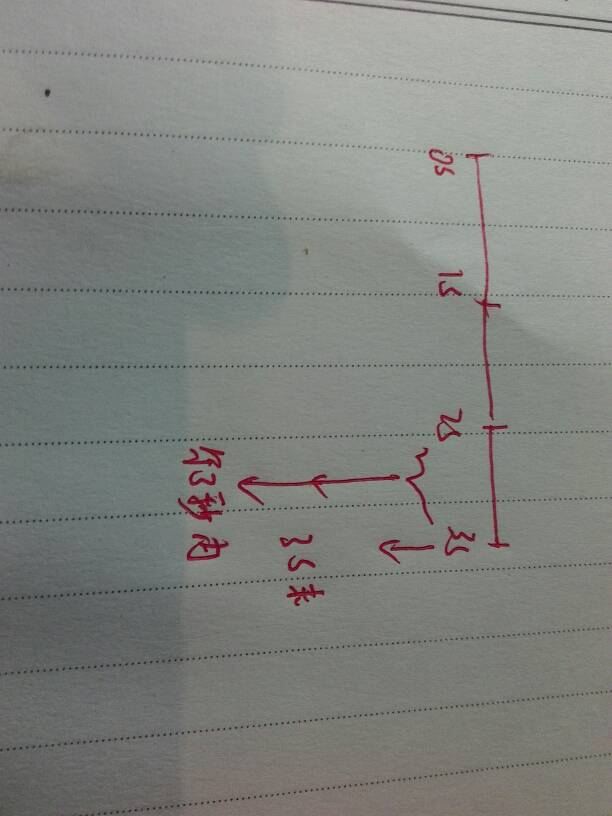 0s 1s 2s 3s
3s末
第3秒内